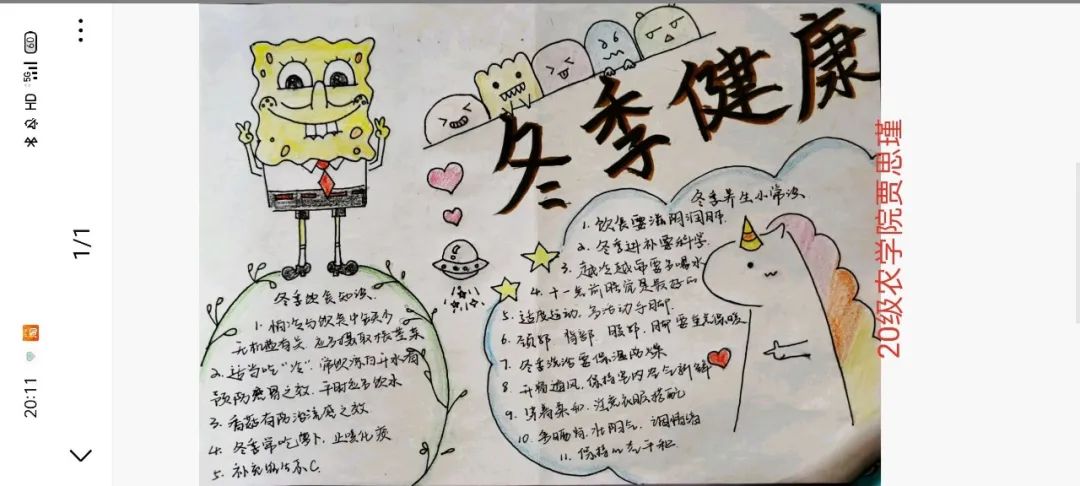 冬季健康
冬季饮食知识
1. 怕冷与饮食中缺少
无机盐有关 应多摄取根茎菜
2. 适当吃“冷”. 常饮凉白开水有
预防感冒之效. 平时应多饮水
3. 香菇有防治流感之效
4. 冬季常吃萝卜. 止咳化痰
5. 补充维生素C.
冬季养生小常识
1. 饮食要滋阴润肺.
2. 冬季进补要科学.
3. 越冷越需要多喝水
4. 十一点前睡觉是最好的
5. 适度运动. 多活动手脚.
6. 颈部 背部 腹部. 脚要重点保暖
7. 冬季洗浴要保湿防燥
8 开窗通风. 保持室内空气新鲜
9. 穿着柔和. 注意衣服搭配
10. 多晒太阳. 壮阳气. 调情绪
11. 保持心态平和.
20级农学院贾思瑾
20:11
1/1
HD
5G
60